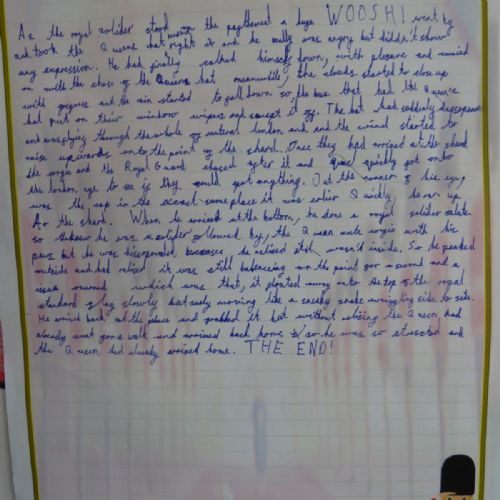 As the royal soldier stood were the pavement a huge WOOSH! went by
and took the Queens hat right it and he really was angry but didn't show
any expression. He had firstly calmed himself down, with pleasure and carried
on with the chase of the Queens hat meanwhile, the clouds started to close up
with and the rain started to fall down so, the bus that had the Queens
hat put on their window wipers and swept it off. The hat had suddenly disappeared
and was flying through the whole of central london and and the wind started to
raise upwards onto the point of the shard. Once they had arrived at the shard
the and the Royal Guard chased after it and quickly got onto
the london eye to see if they could spot anything. Out the corner of his eye,
was the cap in the same place it was earlier Quickly, he ran up
to the shard. When he arrived at the bottom, he done a royal soldier salute
so they knew he was a soldier followed by, the Queen with his
but he was disappointed because he relised it wasn't inside. So he peaked
outside and had relised it was still balencing on the point for a second and a
issue occured which was that, it floated away onto the top of the royal
standard flag slowly curiously moving like a sneaky snake wriggling side to side.
He arrived back at the place and grabbed it but without relising the Queen had
already went for a walk and arrived back home so he was so stressed and
the Queen, had already arrived home. THE END!